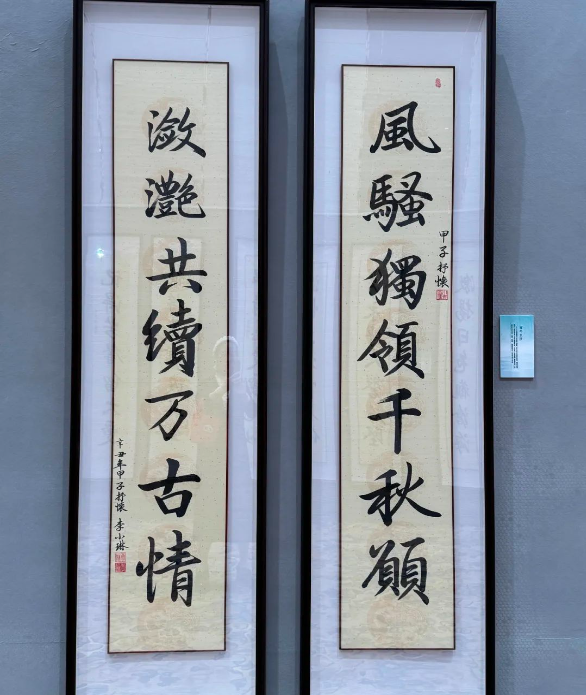 風騷獨領千秋願
甲子抒懷
瀲灔共續万古情
辛丑年甲子抒懷 李小琳